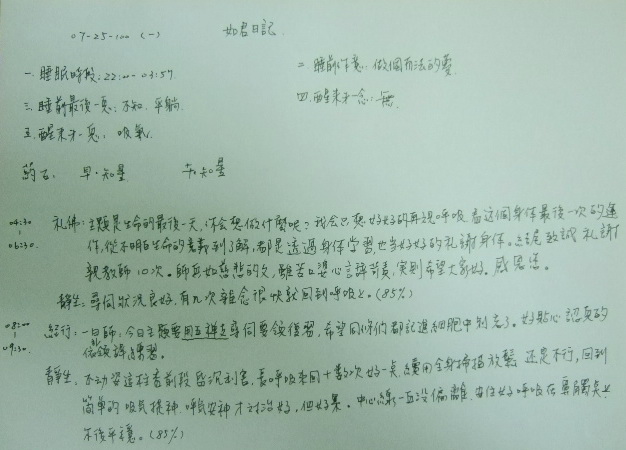 07-25-100 (一) 如君日記.
一.睡眠時段:22:00-03:57 二.睡前作意:做個有法的靈.
三.睡前最後一息:不知.平躺 四.醒來才一念:無
五.醒來才一息:吸氣.
药石: 早.知量 午.知量
04:30 | 06:30. 礼佛:主題是生命的最後一天,你会想做什麼呢?我会只想好好的再観呼吸,看這個身体最後一次的運
作,從不明白生命的意義到了解,都是透過身体學習也当好好的礼謝身体。致誠礼謝
親教師10次。師再如慈悲的父,雖苦口婆心言詞責,実則希望大家好。感恩您。
靜坐:尋伺狀況良好,有几次雜念很快就回到呼吸上。(85%)
08:00 | 09:30. 経行:一白師:今日主題要用五禅支尋伺要領復習,希望同修们都記進細胞中别忘了。好點心認真的
依領謀練習。
靜坐.不动姿這柱香前段昏沉利害,長呼吸來回十數次好一点,用全身掃描放鬆還是不行,回到
簡单的吸氣提神呼氣安神才対治好,但好累。中心線一直没偏離.守住好呼吸在專觸点上
不後平穩。(83%)